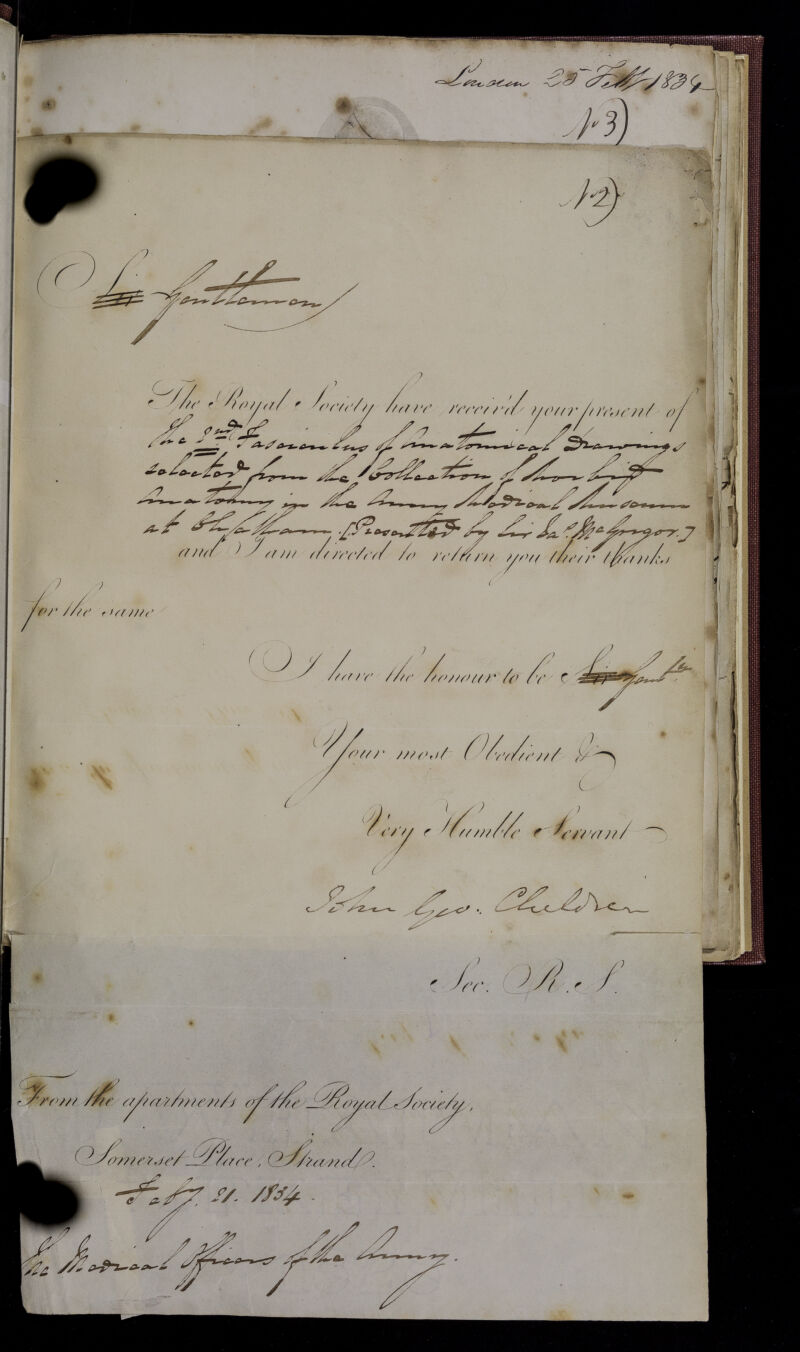 London 25 Feb 1834
No 3)
No 2)
Sir Gentlemen
The Royal Society have receiv'd your present of
the 2nd Fasciculus of Anatomical Drawings
selected from the Collection of Morbid
Anatomy in the Army Medical Museum
at Chatham. [Presented by Sir Jas. McGrigor.]
and I am directed to return you their thanks
for the same
I have the honour to be Sir Gentln
Your most Obedient &
Very Humble Servant
John Geo: Children
Sec. R. S.
From the apartments of the Royal Society,
Somerset Place, Strand.
Feby. 21. 1834.
The Medical Officers of the Army.